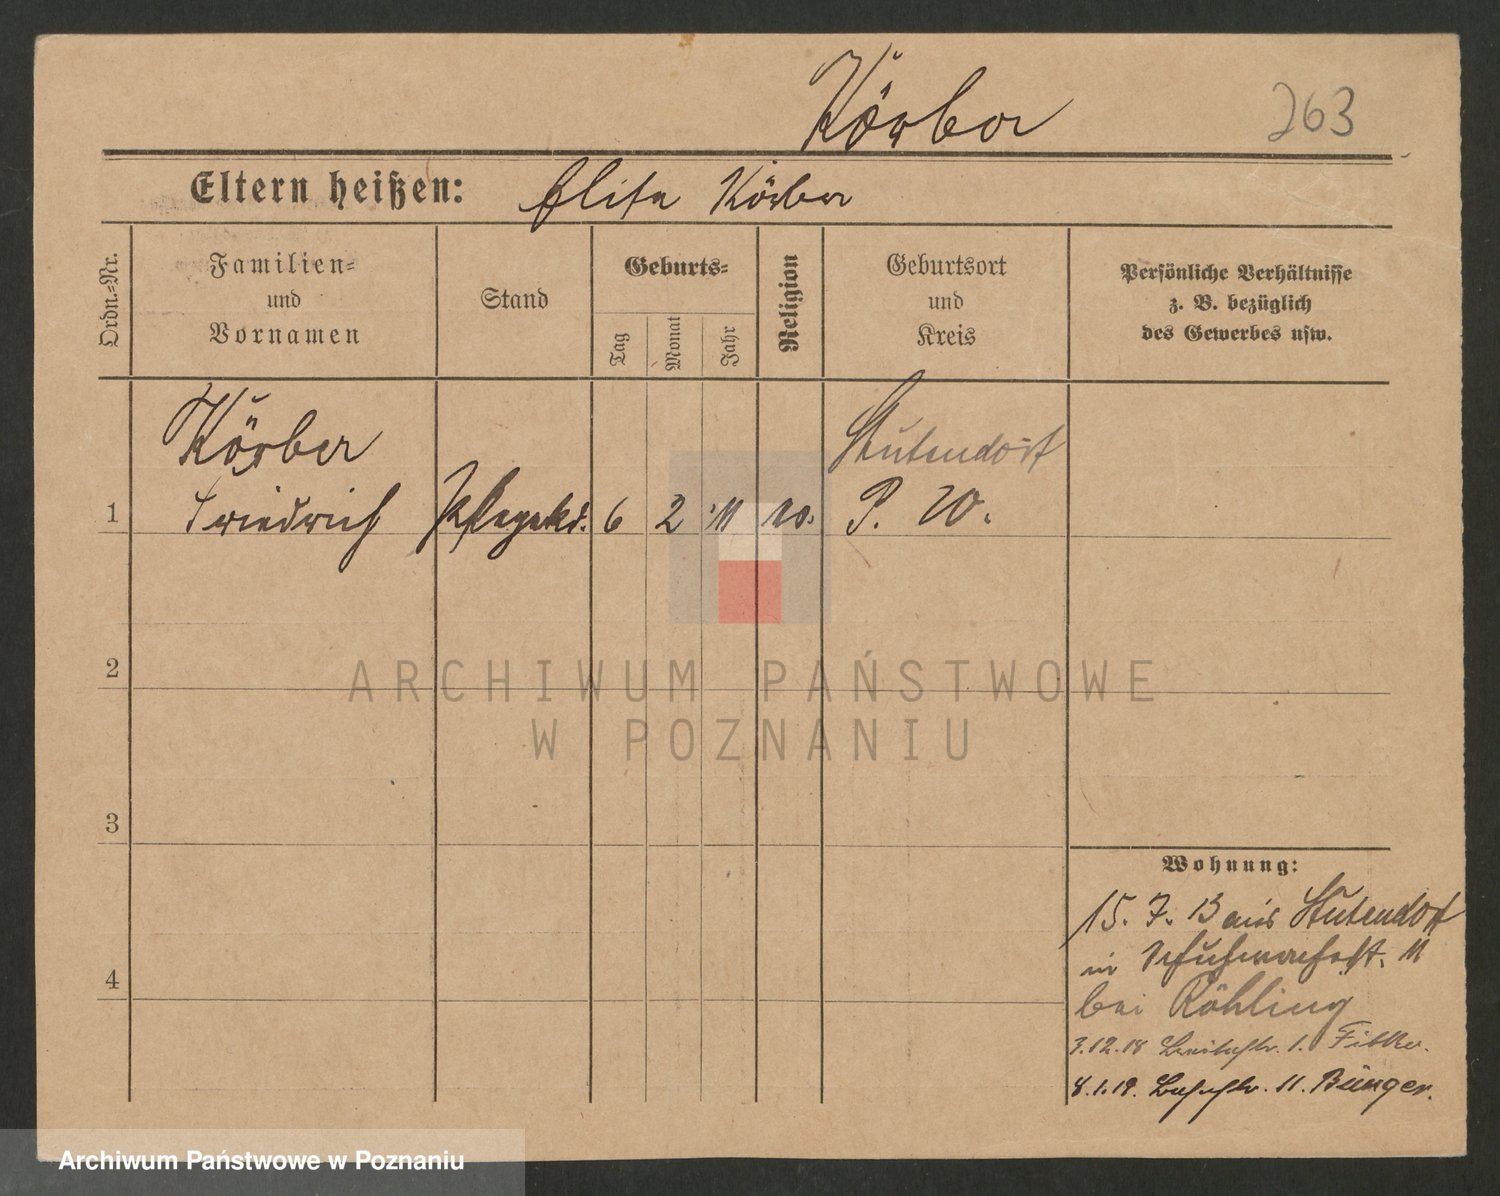 Körber
263
Eltern heißen: Elise Körber
Ordn.-Nr.
Familien-
und
Vornamen
Stand
Geburts-
Tag
Monat
Jahr
Religion
Geburtsort
und
Kreis
Persönliche Verhältnisse
z. B. bezüglich
des Gewerbes usw.
Körber
Stutendorf
1 Friedrich Pflegekd. 6 2 11 P. W.
2
3
4
Wohnung:
15. 7. 13 aus Stutendorf
in 11
bei Röhling
3.12.18 1.
8.1.19. 11. Bünger.
ARCHIWUM PAŃSTWOWE
W POZNANIU
Archiwum Państwowe w Poznaniu